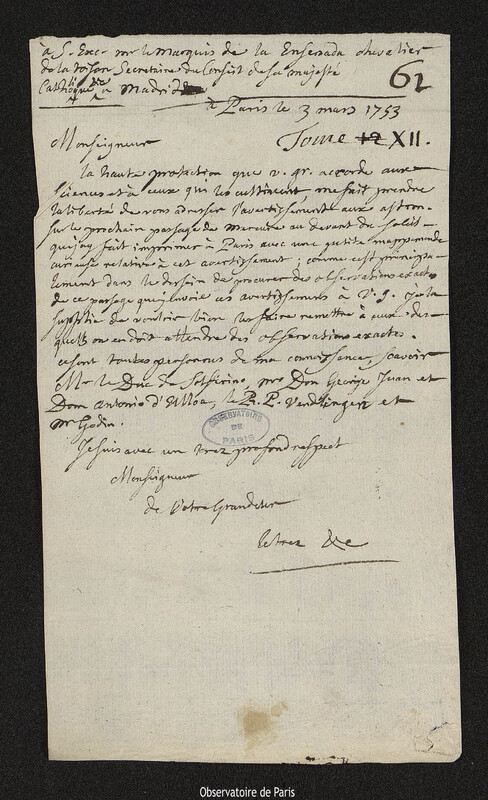 à S. Exc. mr le Marquis de la Ensenada chevalier
de la toison Secretaire du Conseil de sa majesté
Catholique à Madrid
62
à Paris le 3 mars 1753
Tome 12 XII.
Monseigneur
la haute protection que v. gr. accorde aux
sciences et à ceux qui les cultivent me fait prendre
la liberté de vous adresser l'avertissement aux astron.
sur le prochain passage de mercure au devant du soleil
que j'ay fait imprimer à Paris avec une petite mappemonde
curieuse relative à cet avertissement; comme c'est principa-
lement dans le dessein de procurer des observations exactes
de ce passage que j'envoie ces avertissements à V. g. je la
supplie de vouloir bien les faire remettre à ceux des-
quels on en doit attendre des observations exactes.
ce sont toutes personnes de ma connoissance, sçavoir
Mr le Duc de Solferino, mrs Don George Juan et
Dom antonio d'Ulloa, le R. P. Vendlingen et
mr Godin.
Je suis avec un trez profond respect
Monseigneur
de Votre Grandeur
le trez &c
OBSERVATOIRE
DE
PARIS
Observatoire de Paris